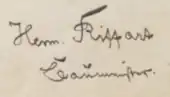 Herrn. Riffart
Baumeister.